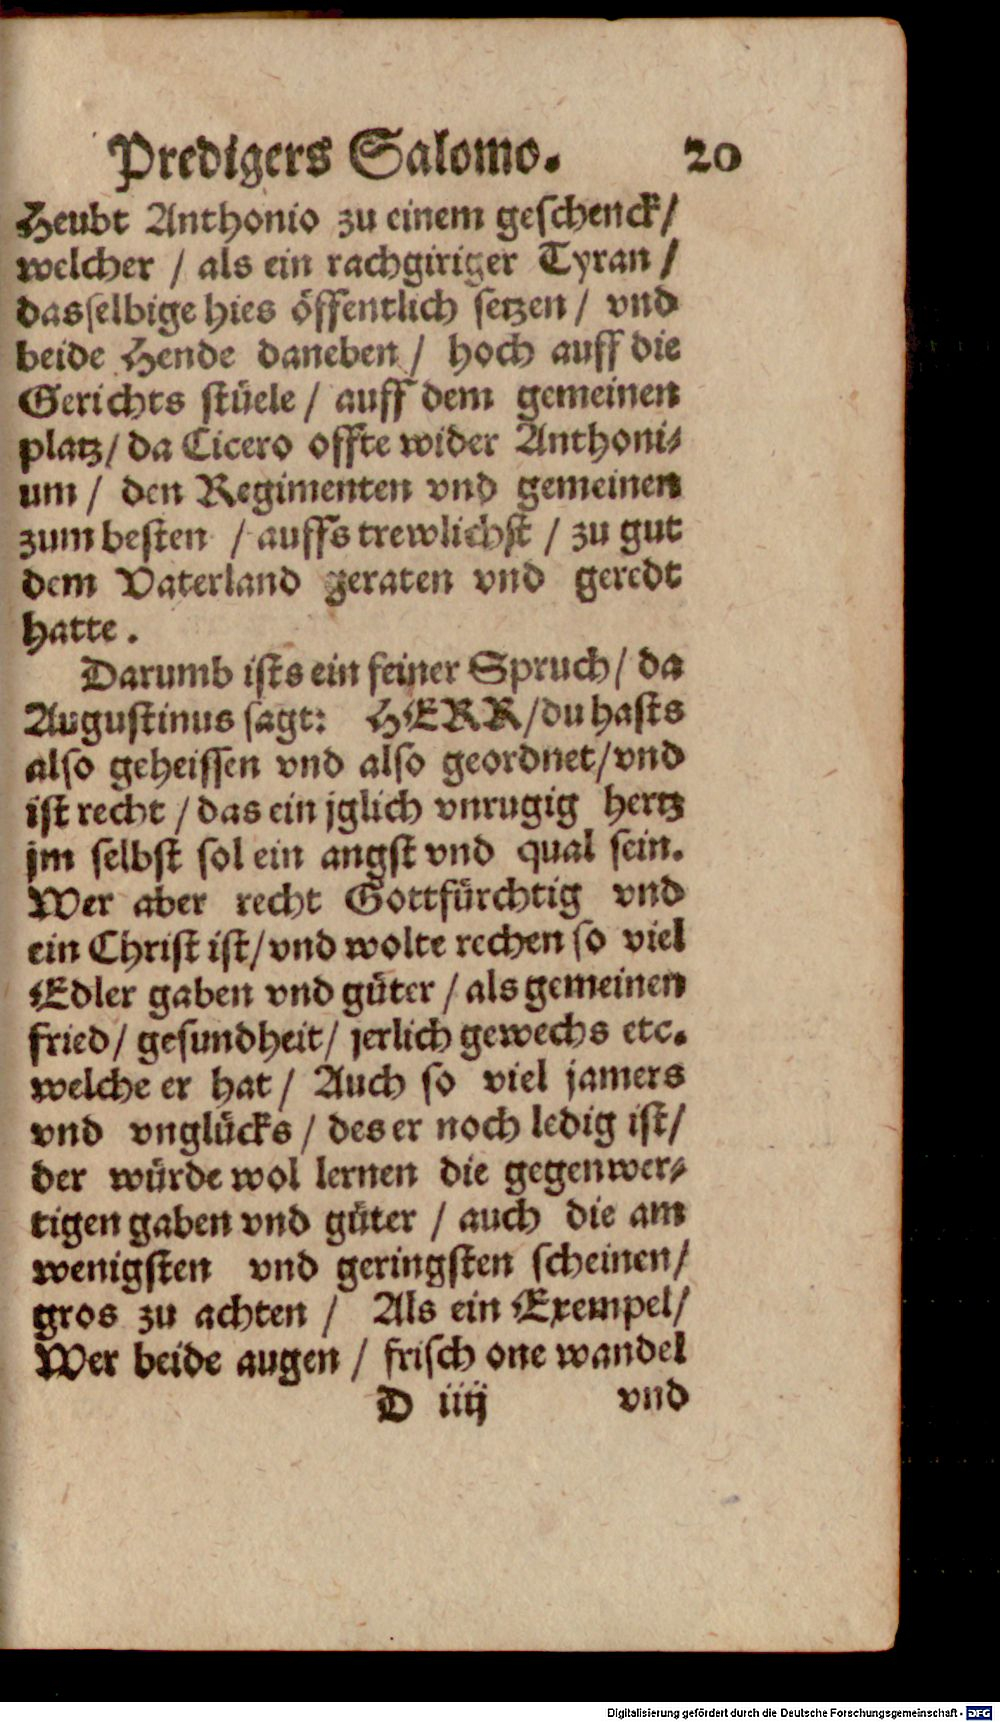 Predigers Salomo. 20
Heubt Anthonio zu einem geschenck/
welcher / als ein rachgiriger Tyran /
dasselbige hies öffentlich setzen / vnd
beide Hende daneben / hoch auff die
Gerichts stüele / auff dem gemeinen
platz / da Cicero offte wider Anthoni⸗
um / den Regimenten vnd gemeinen
zum besten / auffs trewlichst / zu gut
dem Vaterland geraten vnd geredt
hatte.
Darumb ists ein feiner Spruch / da
Augustinus sagt: HERR / du hasts
also geheissen vnd also geordnet / vnd
ist recht / das ein jglich vnrugig hertz
jm selbst sol ein angst vnd qual sein.
Wer aber recht Gottfürchtig vnd
ein Christ ist / vnd wolte rechen so viel
Edler gaben vnd güter / als gemeinen
fried / gesundheit / jerlich gewechs etc.
welche er hat / Auch so viel jamers
vnd vnglücks / des er noch ledig ist /
der würde wol lernen die gegenwer⸗
tigen gaben vnd güter / auch die am
wenigsten vnd geringsten scheinen /
gros zu achten / Als ein Exempel /
Wer beide augen / frisch one wandel
D iiij vnd
Digitalisierung gefördert durch die Deutsche Forschungsgemeinschaft - DFG